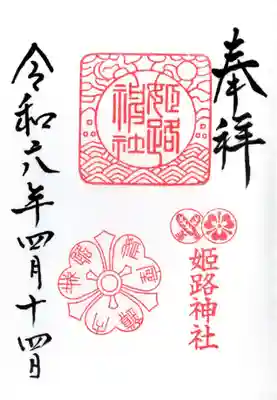 奉拝
姫路神社
姫路神社
令和六年四月十四日